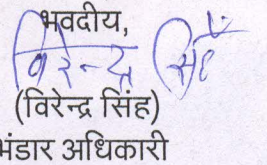 भवदीय,
विरेन्द्र सिंह
(विरेन्द्र सिंह)
भंडार अधिकारी